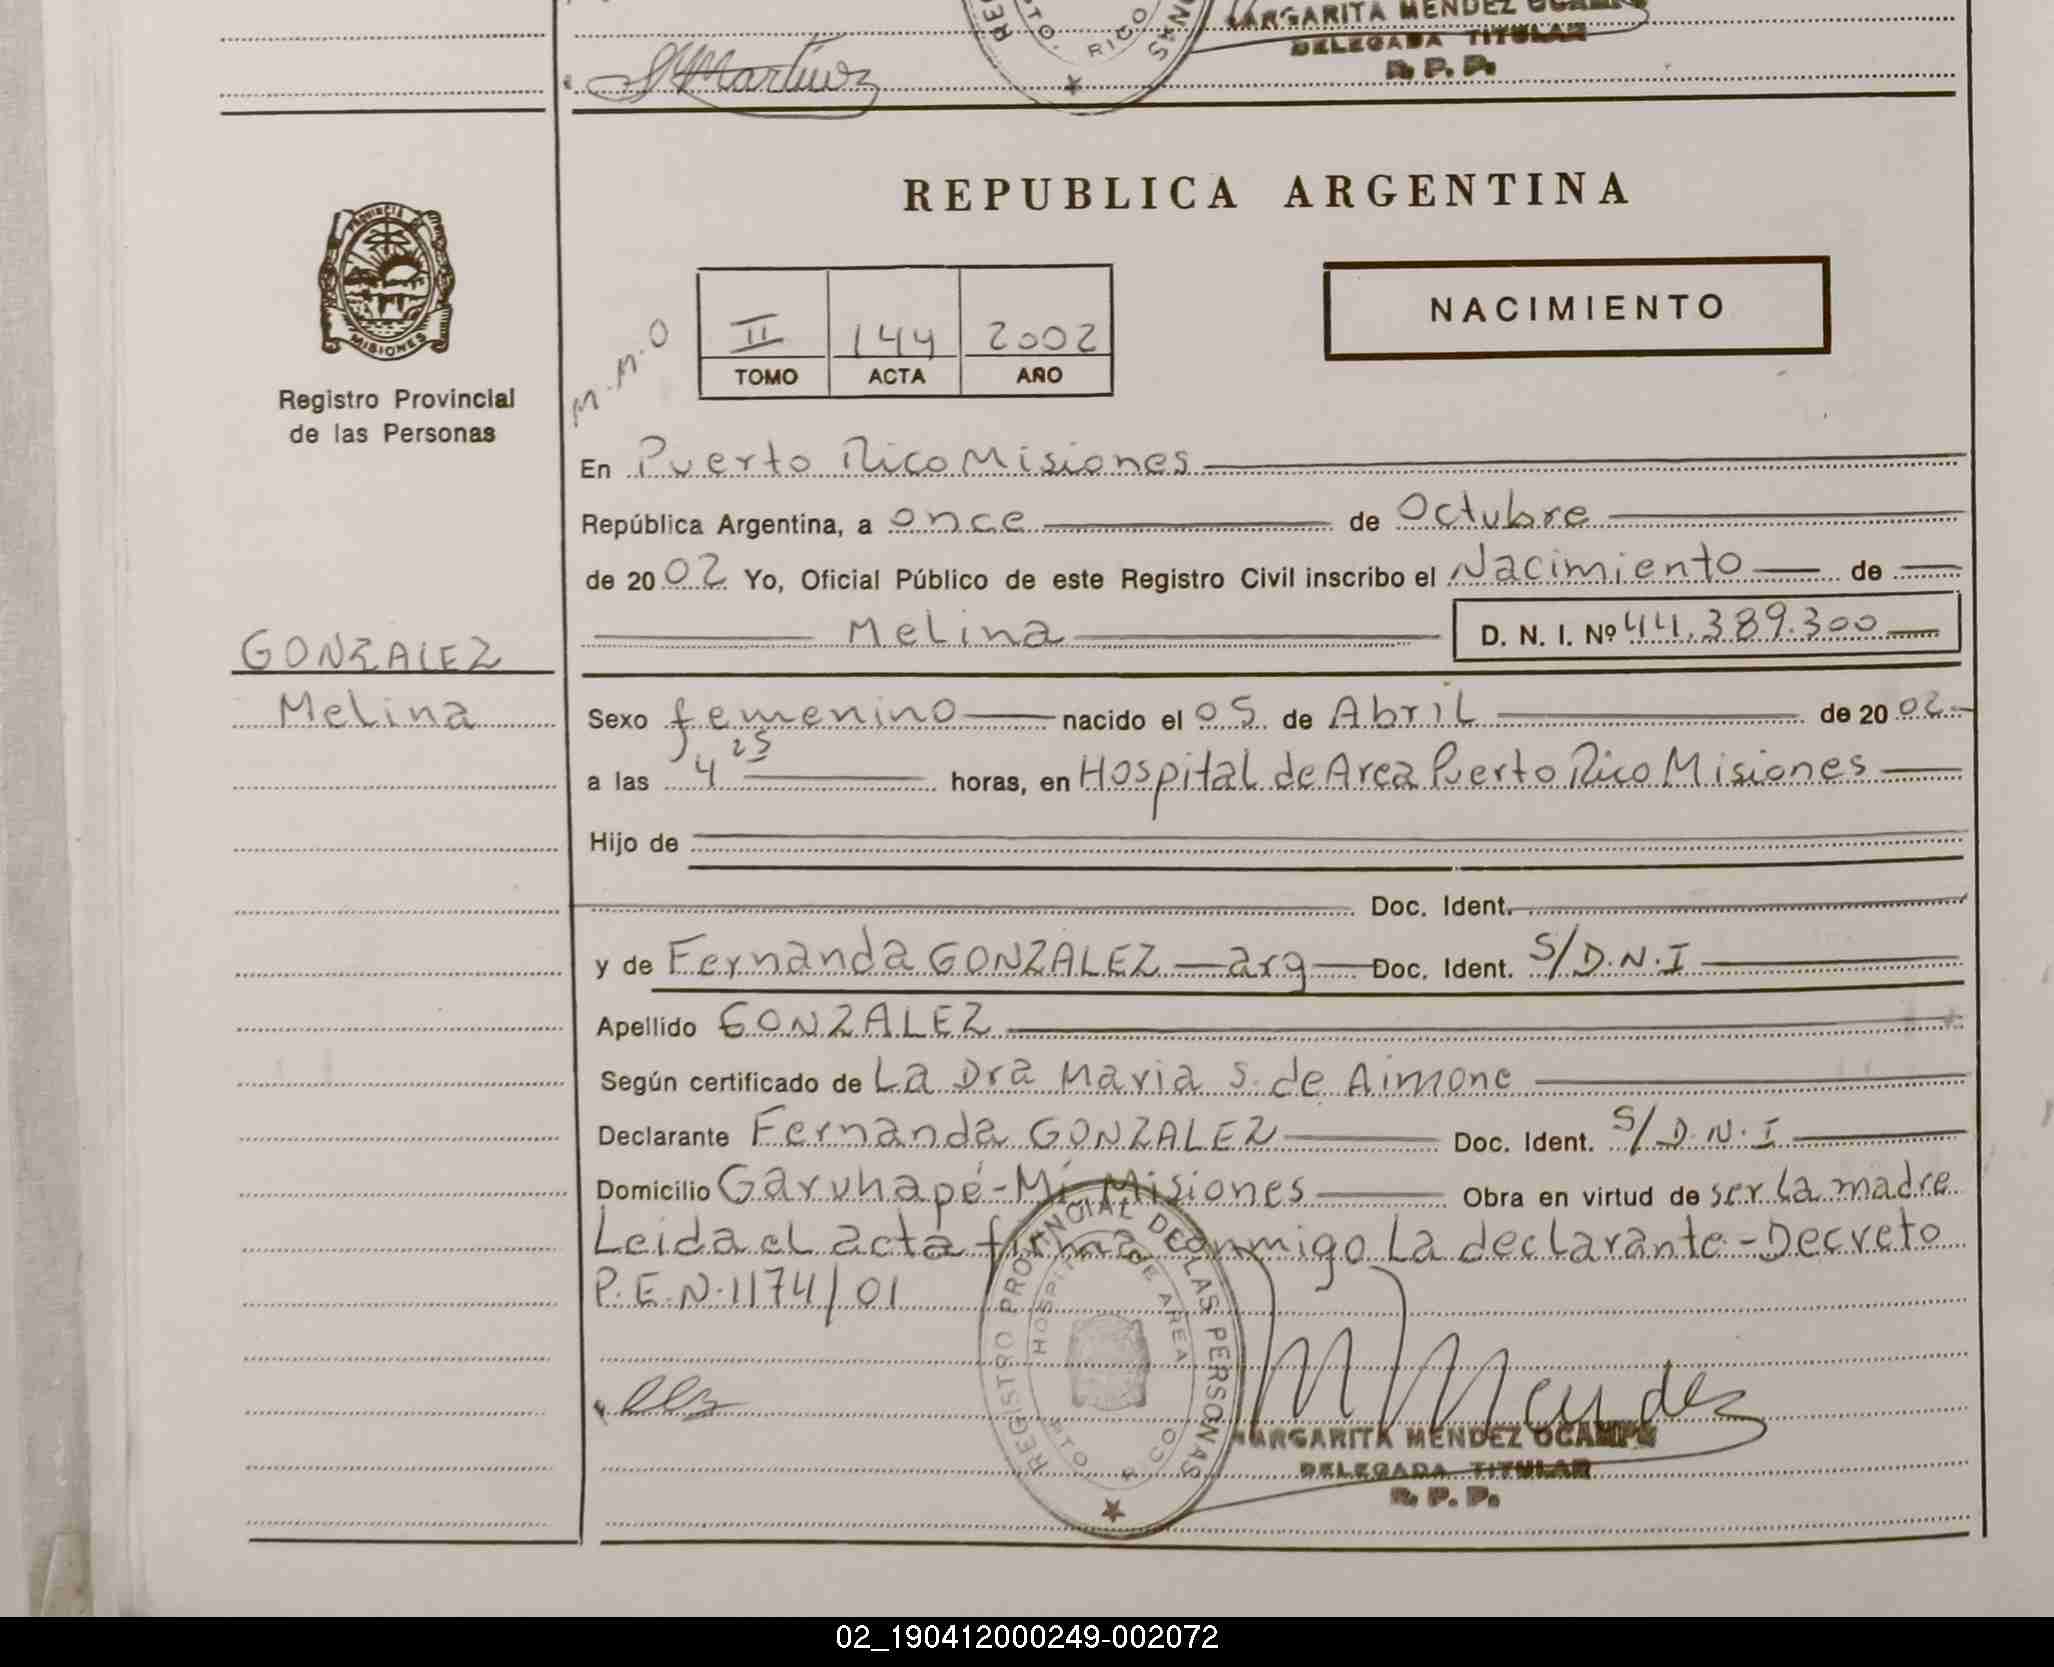 MARGARITA MENDEZ OCAMPO
DELEGADA TITULAR
R. P. P.
PTO. RICO
REPUBLICA ARGENTINA
PROVINCIA DE
MISIONES
Registro Provincial
de las Personas
NACIMIENTO
M.M.O
II 144 2002
TOMO ACTA AÑO
En Puerto Rico Misiones
República Argentina, a once de Octubre
de 2002 Yo, Oficial Público de este Registro Civil inscribo el Nacimiento de
Melina D. N. I. Nº 44.389.300
GONZALEZ
Melina
Sexo femenino nacido el 05 de Abril de 2002
a las 4 25 horas, en Hospital de Area Puerto Rico Misiones
Hijo de
Doc. Ident.
y de Fernanda GONZALEZ — arg — Doc. Ident. S/D.N.I
Apellido GONZALEZ
Según certificado de La Dra Maria S. de Aimone
Declarante Fernanda GONZALEZ Doc. Ident. S/D.N.I
Domicilio Garuhapé-Mí Misiones Obra en virtud de ser la madre
Leida el acta firma conmigo La declarante - Decreto
P.E.N. 1174/01
REGISTRO PROVINCIAL DE LAS PERSONAS
HOSPITAL DE AREA
PTO. RICO
M Mendez
MARGARITA MENDEZ OCAMPO
DELEGADA TITULAR
R. P. P.
02_190412000249-002072